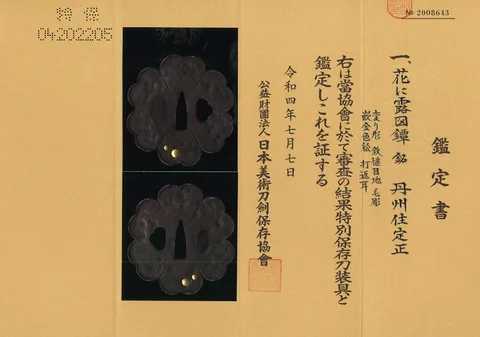 特保
04202205
№ 2008643
鑑定書
一、花に露図鐔 銘 丹州住定正
変り形 鉄槌目地 毛彫
色絵 打返耳
右は當協會に於て審査の結果特別保存刀装具と
鑑定しこれを証する
令和四年七月七日
公益財團法人 日本美術刀劍保存協會